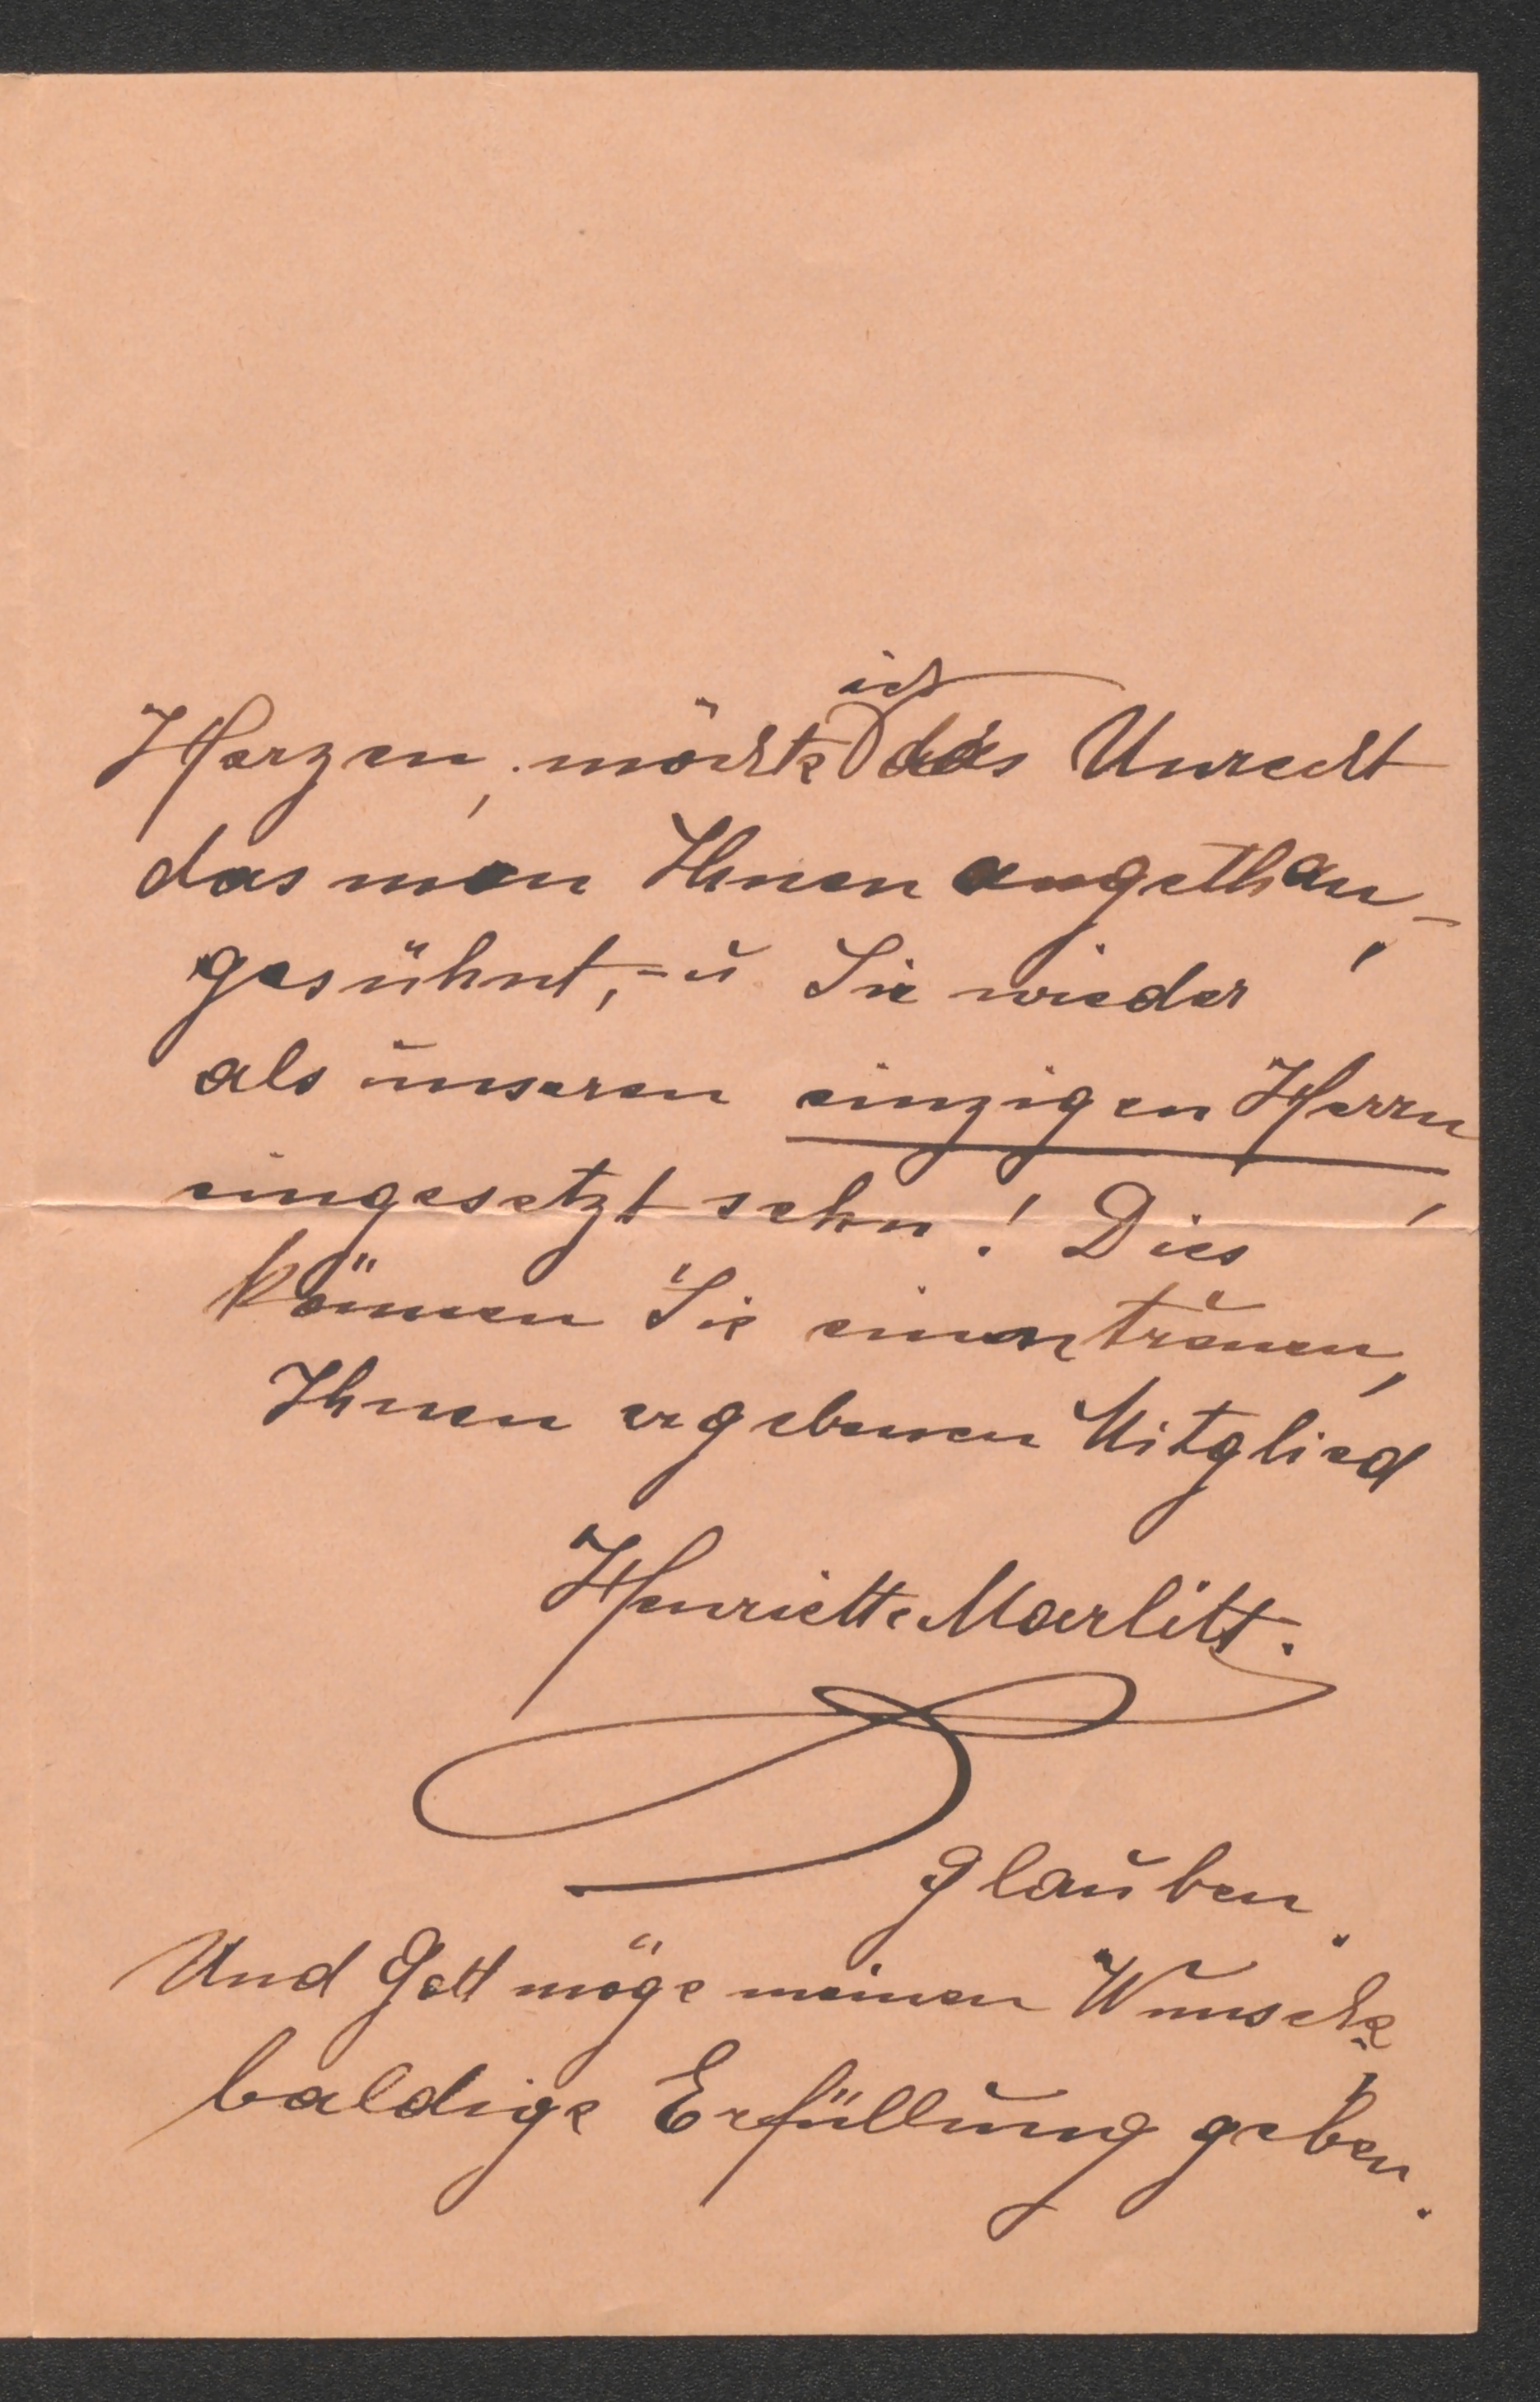 ich
Herzen, möchte das Unrecht
das man Ihnen angethan,-
gesühnt,- u Sie wieder
als unseren einzigen Herrn
eingesetzt sehn! Dies
können Sie einem treuen,
Ihnen ergebenen Mitglied
Henriette Marlitt.
glauben.
Und Gott möge meinen Wunsche
baldige Erfüllung geben.